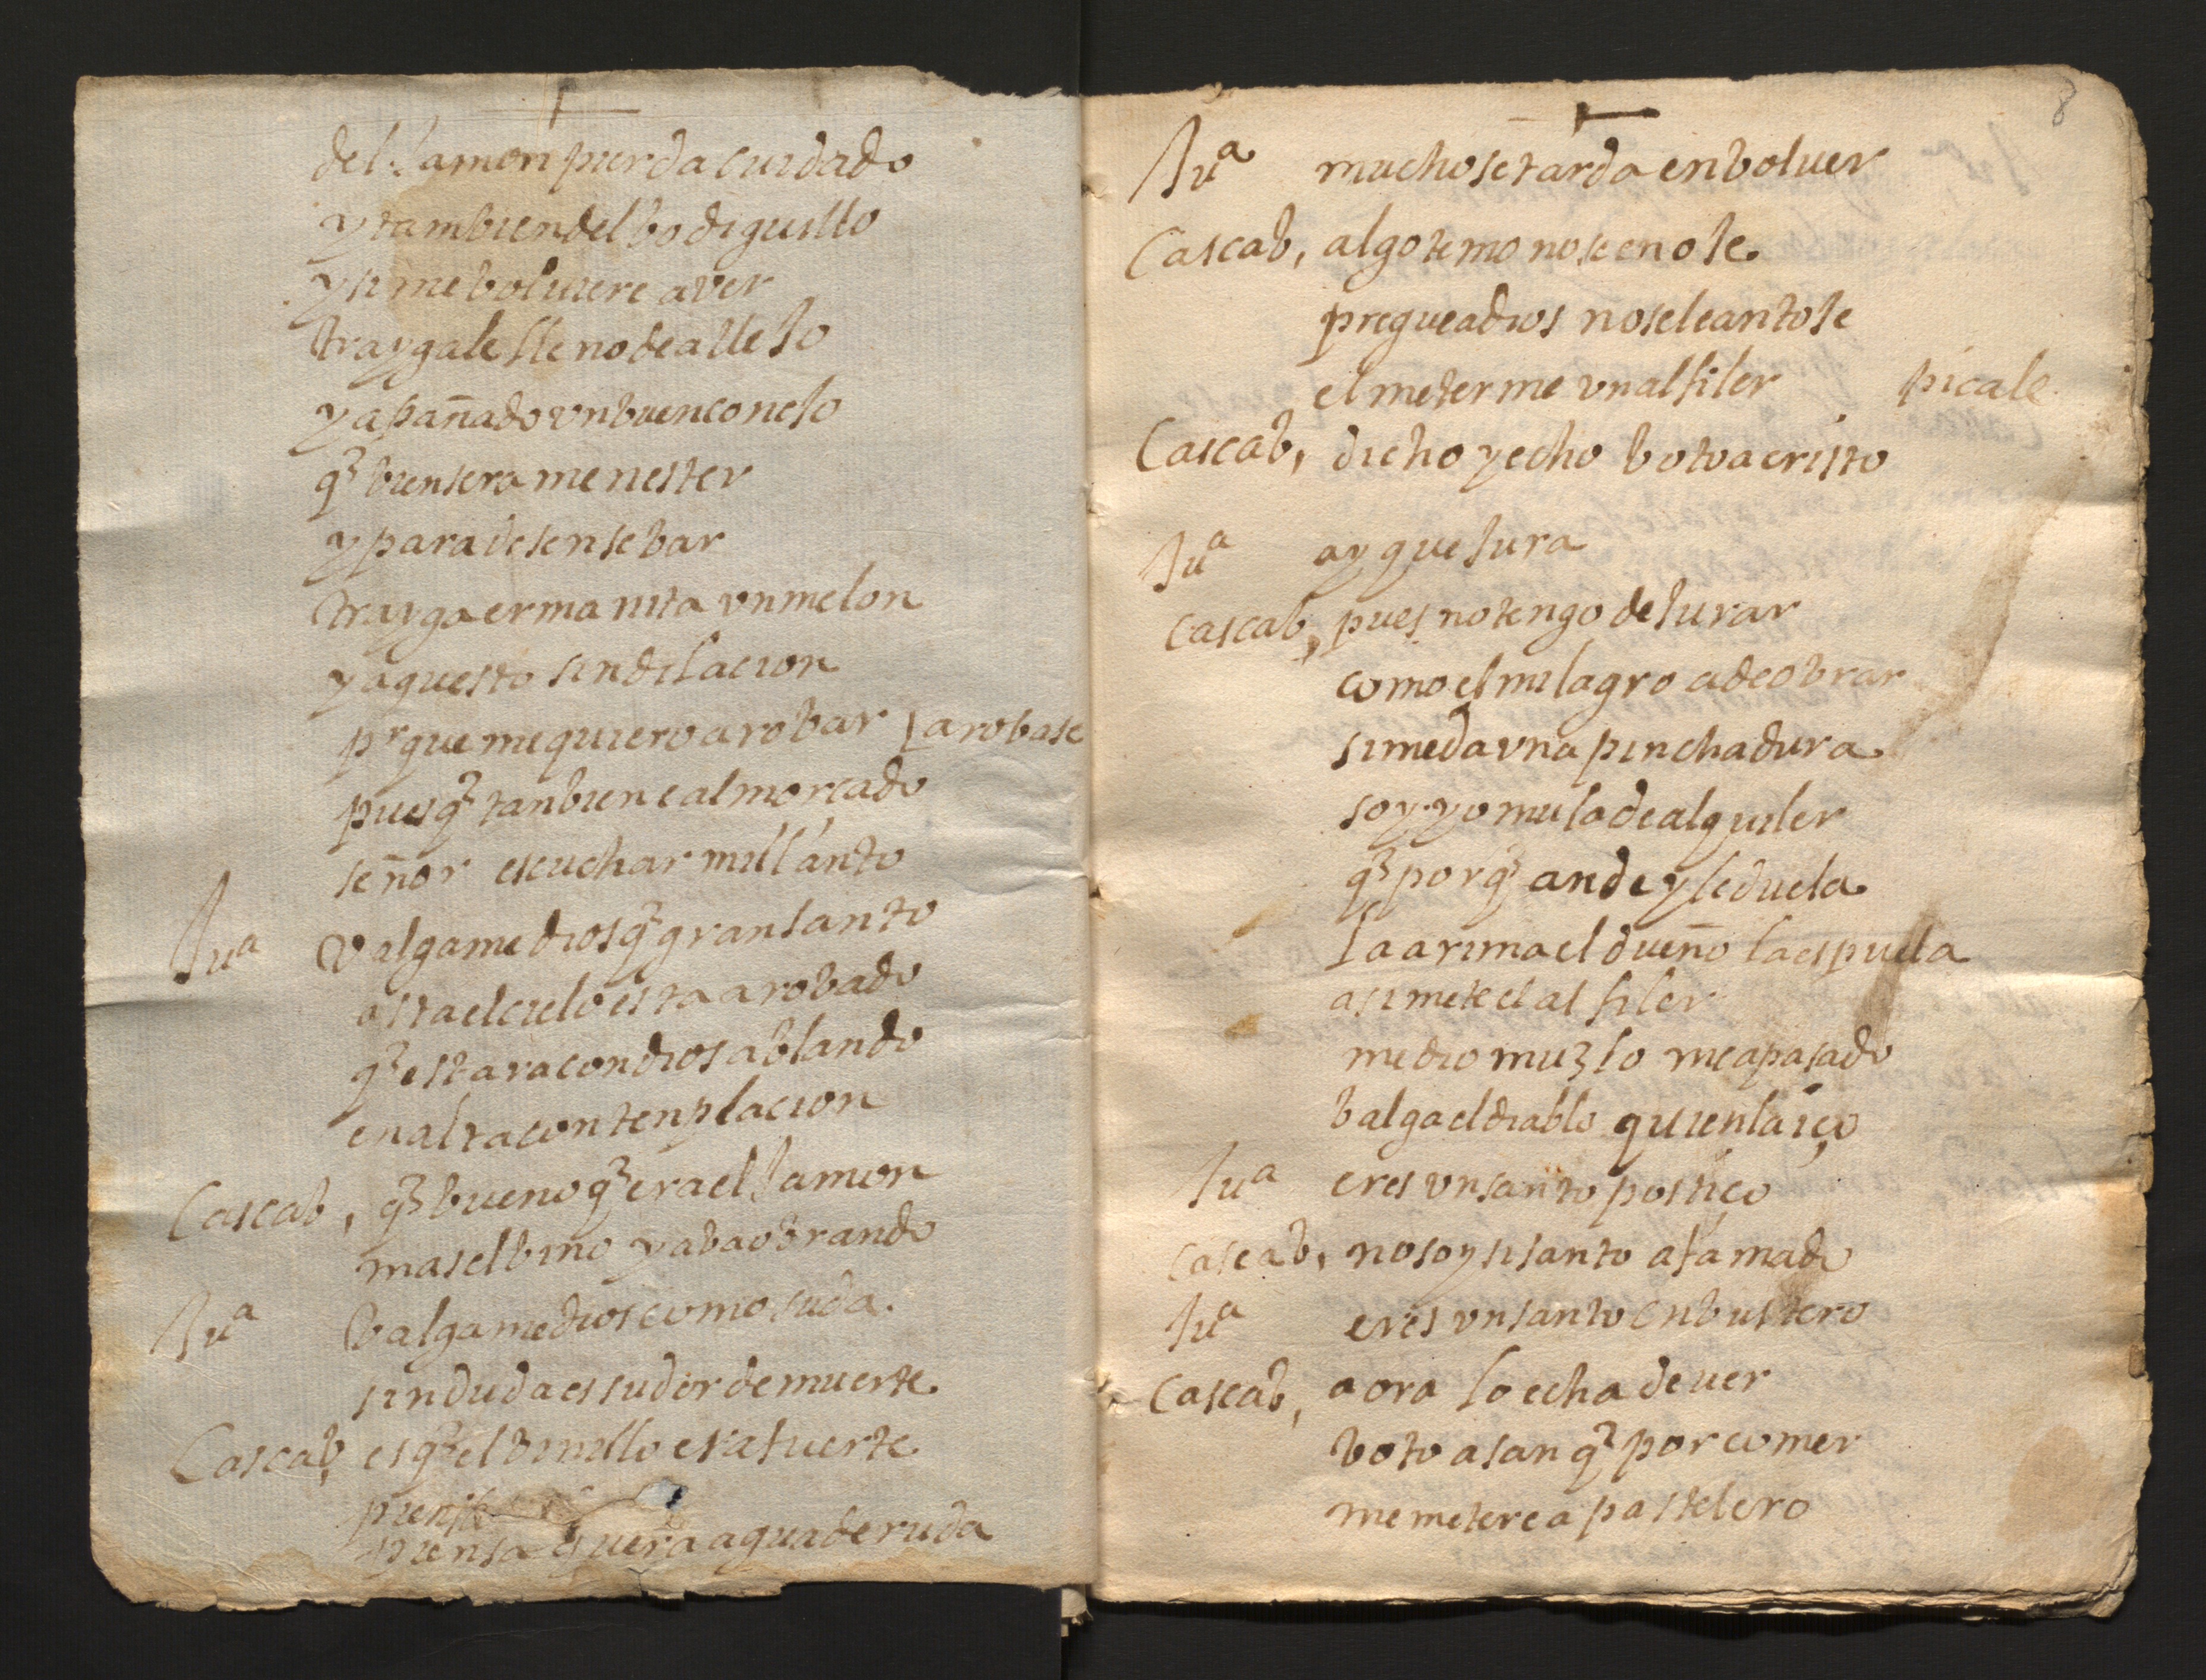 del Jamon pierda cuidado
y tambien del bodiguillo
y si me boluiere a ver
traygale lleno de alleJo
y apañado vn buen coneJo
q̃ bien sera menester
y para desensebar
trayga ermanita vn melon
y aquesto sin dilacion
pr que me quiero arobar [arobase
pues q̃ tanbien e almorcado
señor escuchar mill anto
Jua valgame dios q̃ gran santo
asta el cielo esta arobado
q̃ estara con dios ablando
en alta contenplacion
Cascab, q̃ bueno q̃ era el Jamon
mas el bino ya ba obrando
Jua balgame dios como suda.
sin duda es sudor de muerte.
Cascab, es q̃ el binillo era fuerte
piensa
piensa q uera agua de ruda
8
Jua mucho se tarda en boluer
Cascab, algo temo no se enoJe.
pregue a dios no se le antoJe
el meterme vn alfiler picale
Cascab, dicho y echo boto a cristo
Jua ay que Jura
Cascab, pues no tengo de Jurar
como el milagro a de obrar
si me da vna pinchadura.
soy yo mula de alquiler
q̃ por q̃ ande y le duela.
la arima el dueño la espuela
asi mete el alfiler
medio muzlo me a pasado
balga el diablo quien la iço
Jua eres vn santo postiço
Cascab, no soy si santo afamado
Jua eres vn santo enbustero
Cascab, aora lo echa de uer
boto a san q̃ por comer
me metere a pastelero